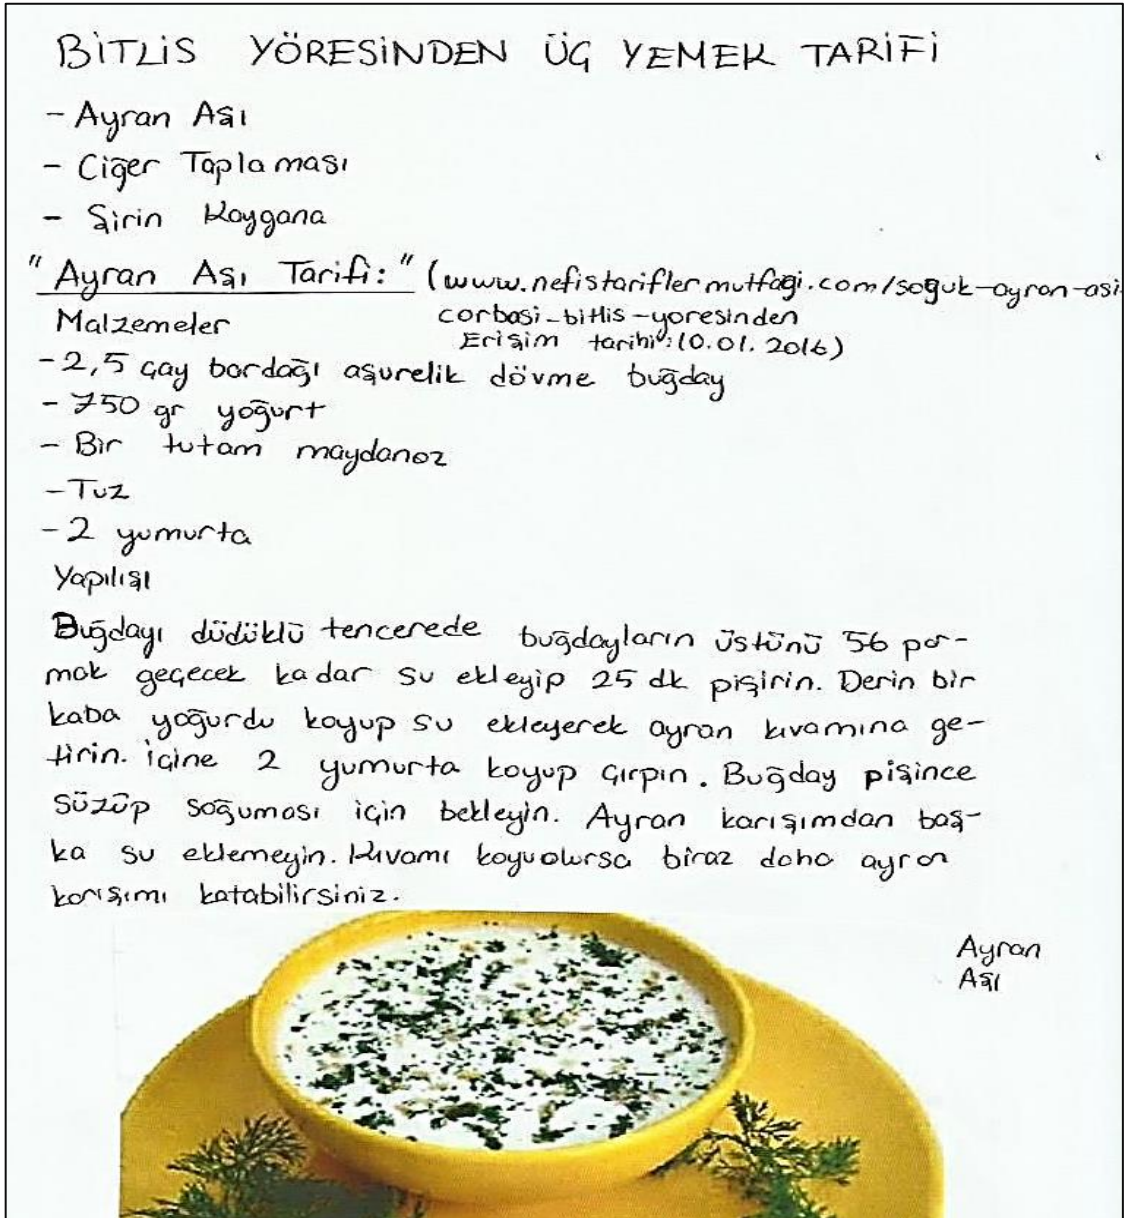 BİTLİS YÖRESİNDEN ÜÇ YEMEK TARİFİ
- Ayran Aşı
- Ciğer Taplaması
- Şirin Kaygana
"Ayran Aşı Tarifi:" (www.nefistariflermutfagi.com/soguk-ayran-asi
Malzemeler corbasi-bitlis-yoresinden
Erişim tarihi: 10.01.2016)
- 2,5 çay bardağı aşurelik dövme buğday
- 750 gr yoğurt
- Bir tutam maydanoz
- Tuz
- 2 yumurta
Yapılışı
Buğdayı düdüklü tencerede buğdayların üstünü 56 par-
mak geçecek kadar su ekleyip 25 dk pişirin. Derin bir
kaba yoğurdu koyup su ekleyerek ayran kıvamına ge-
tirin. İçine 2 yumurta koyup çırpın. Buğday pişince
süzüp soğuması için bekleyin. Ayran karışımdan baş-
ka su eklemeyin. Kıvamı koyuolursa biraz daha ayran
karışımı katabilirsiniz.
Ayran
Aşı